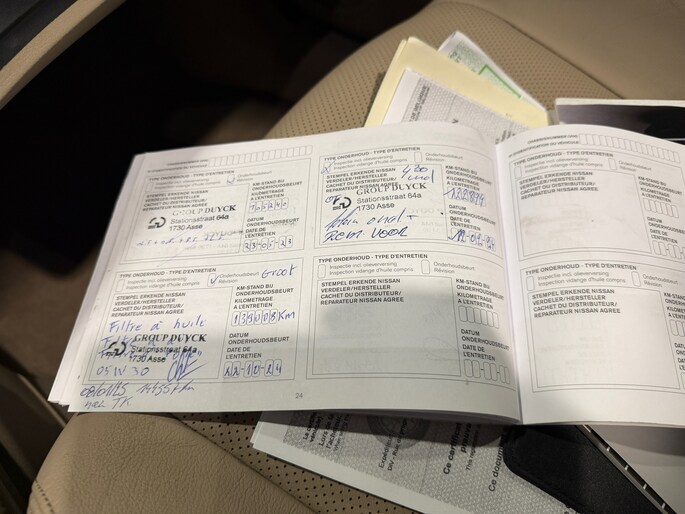 TYPE ONDERHOUD - TYPE D'ENTRETIEN
Inspectie incl. olieverversing
Inspection vidange d'huile compris
Onderhoudsbeurt
Révision
STEMPEL ERKENDE NISSAN
VERDELER/HERSTELLER
CACHET DU DISTRIBUTEUR/
REPARATEUR NISSAN AGREE
KM-STAND BIJ
ONDERHOUDSBEURT
KILOMETRAGE
A L'ENTRETIEN
GROUP DUYCK
Stationsstraat 64a
1730 Asse
DATUM
ONDERHOUDSBEURT
DATE DE
L'ENTRETIEN
23-05-23
TYPE ONDERHOUD - TYPE D'ENTRETIEN
X
Inspectie incl. olieverversing
Inspection vidange d'huile compris
Onderhoudsbeurt
Révision
STEMPEL ERKENDE NISSAN
VERDELER/HERSTELLER
CACHET DU DISTRIBUTEUR/
REPARATEUR NISSAN AGREE
KM-STAND BIJ
ONDERHOUDSBEURT
KILOMETRAGE
A L'ENTRETIEN
GROUP DUYCK
Stationsstraat 64a
1730 Asse
Rem voor
DATUM
ONDERHOUDSBEURT
DATE DE
L'ENTRETIEN
TYPE ONDERHOUD - TYPE D'ENTRETIEN
Inspectie incl. olieverversing
Inspection vidange d'huile compris
Onderhoudsbeurt
Révision
Groot
STEMPEL ERKENDE NISSAN
VERDELER/HERSTELLER
CACHET DU DISTRIBUTEUR/
REPARATEUR NISSAN AGREE
KM-STAND BIJ
ONDERHOUDSBEURT
KILOMETRAGE
A L'ENTRETIEN
139008 Km
Filtre à huile
GROUP DUYCK
Stationsstraat 64a
1730 Asse
05W30
DATUM
ONDERHOUDSBEURT
DATE DE
L'ENTRETIEN
22-10-24
08/01/25
TYPE ONDERHOUD - TYPE D'ENTRETIEN
Inspectie incl. olieverversing
Inspection vidange d'huile compris
Onderhoudsbeurt
Révision
STEMPEL ERKENDE NISSAN
VERDELER/HERSTELLER
CACHET DU DISTRIBUTEUR/
REPARATEUR NISSAN AGREE
KM-STAND BIJ
ONDERHOUDSBEURT
KILOMETRAGE
A L'ENTRETIEN
DATUM
ONDERHOUDSBEURT
DATE DE
L'ENTRETIEN
24
TYPE ONDERHOUD - TYPE D'ENTRETIEN
Inspectie incl. olieverversing
Inspection vidange d'huile compris
STEMPEL ERKENDE NISSAN
VERDELER/HERSTELLER
CACHET DU DISTRIBUTEUR/
REPARATEUR NISSAN AGREE
TYPE ONDERHOUD - TYPE D'ENTRETIEN
Inspectie incl. olieverversing
Inspection vidange d'huile compris
STEMPEL ERKENDE NISSAN
VERDELER/HERSTELLER
CACHET DU DISTRIBUTEUR/
REPARATEUR NISSAN AGREE
Ce certif
Ce docum